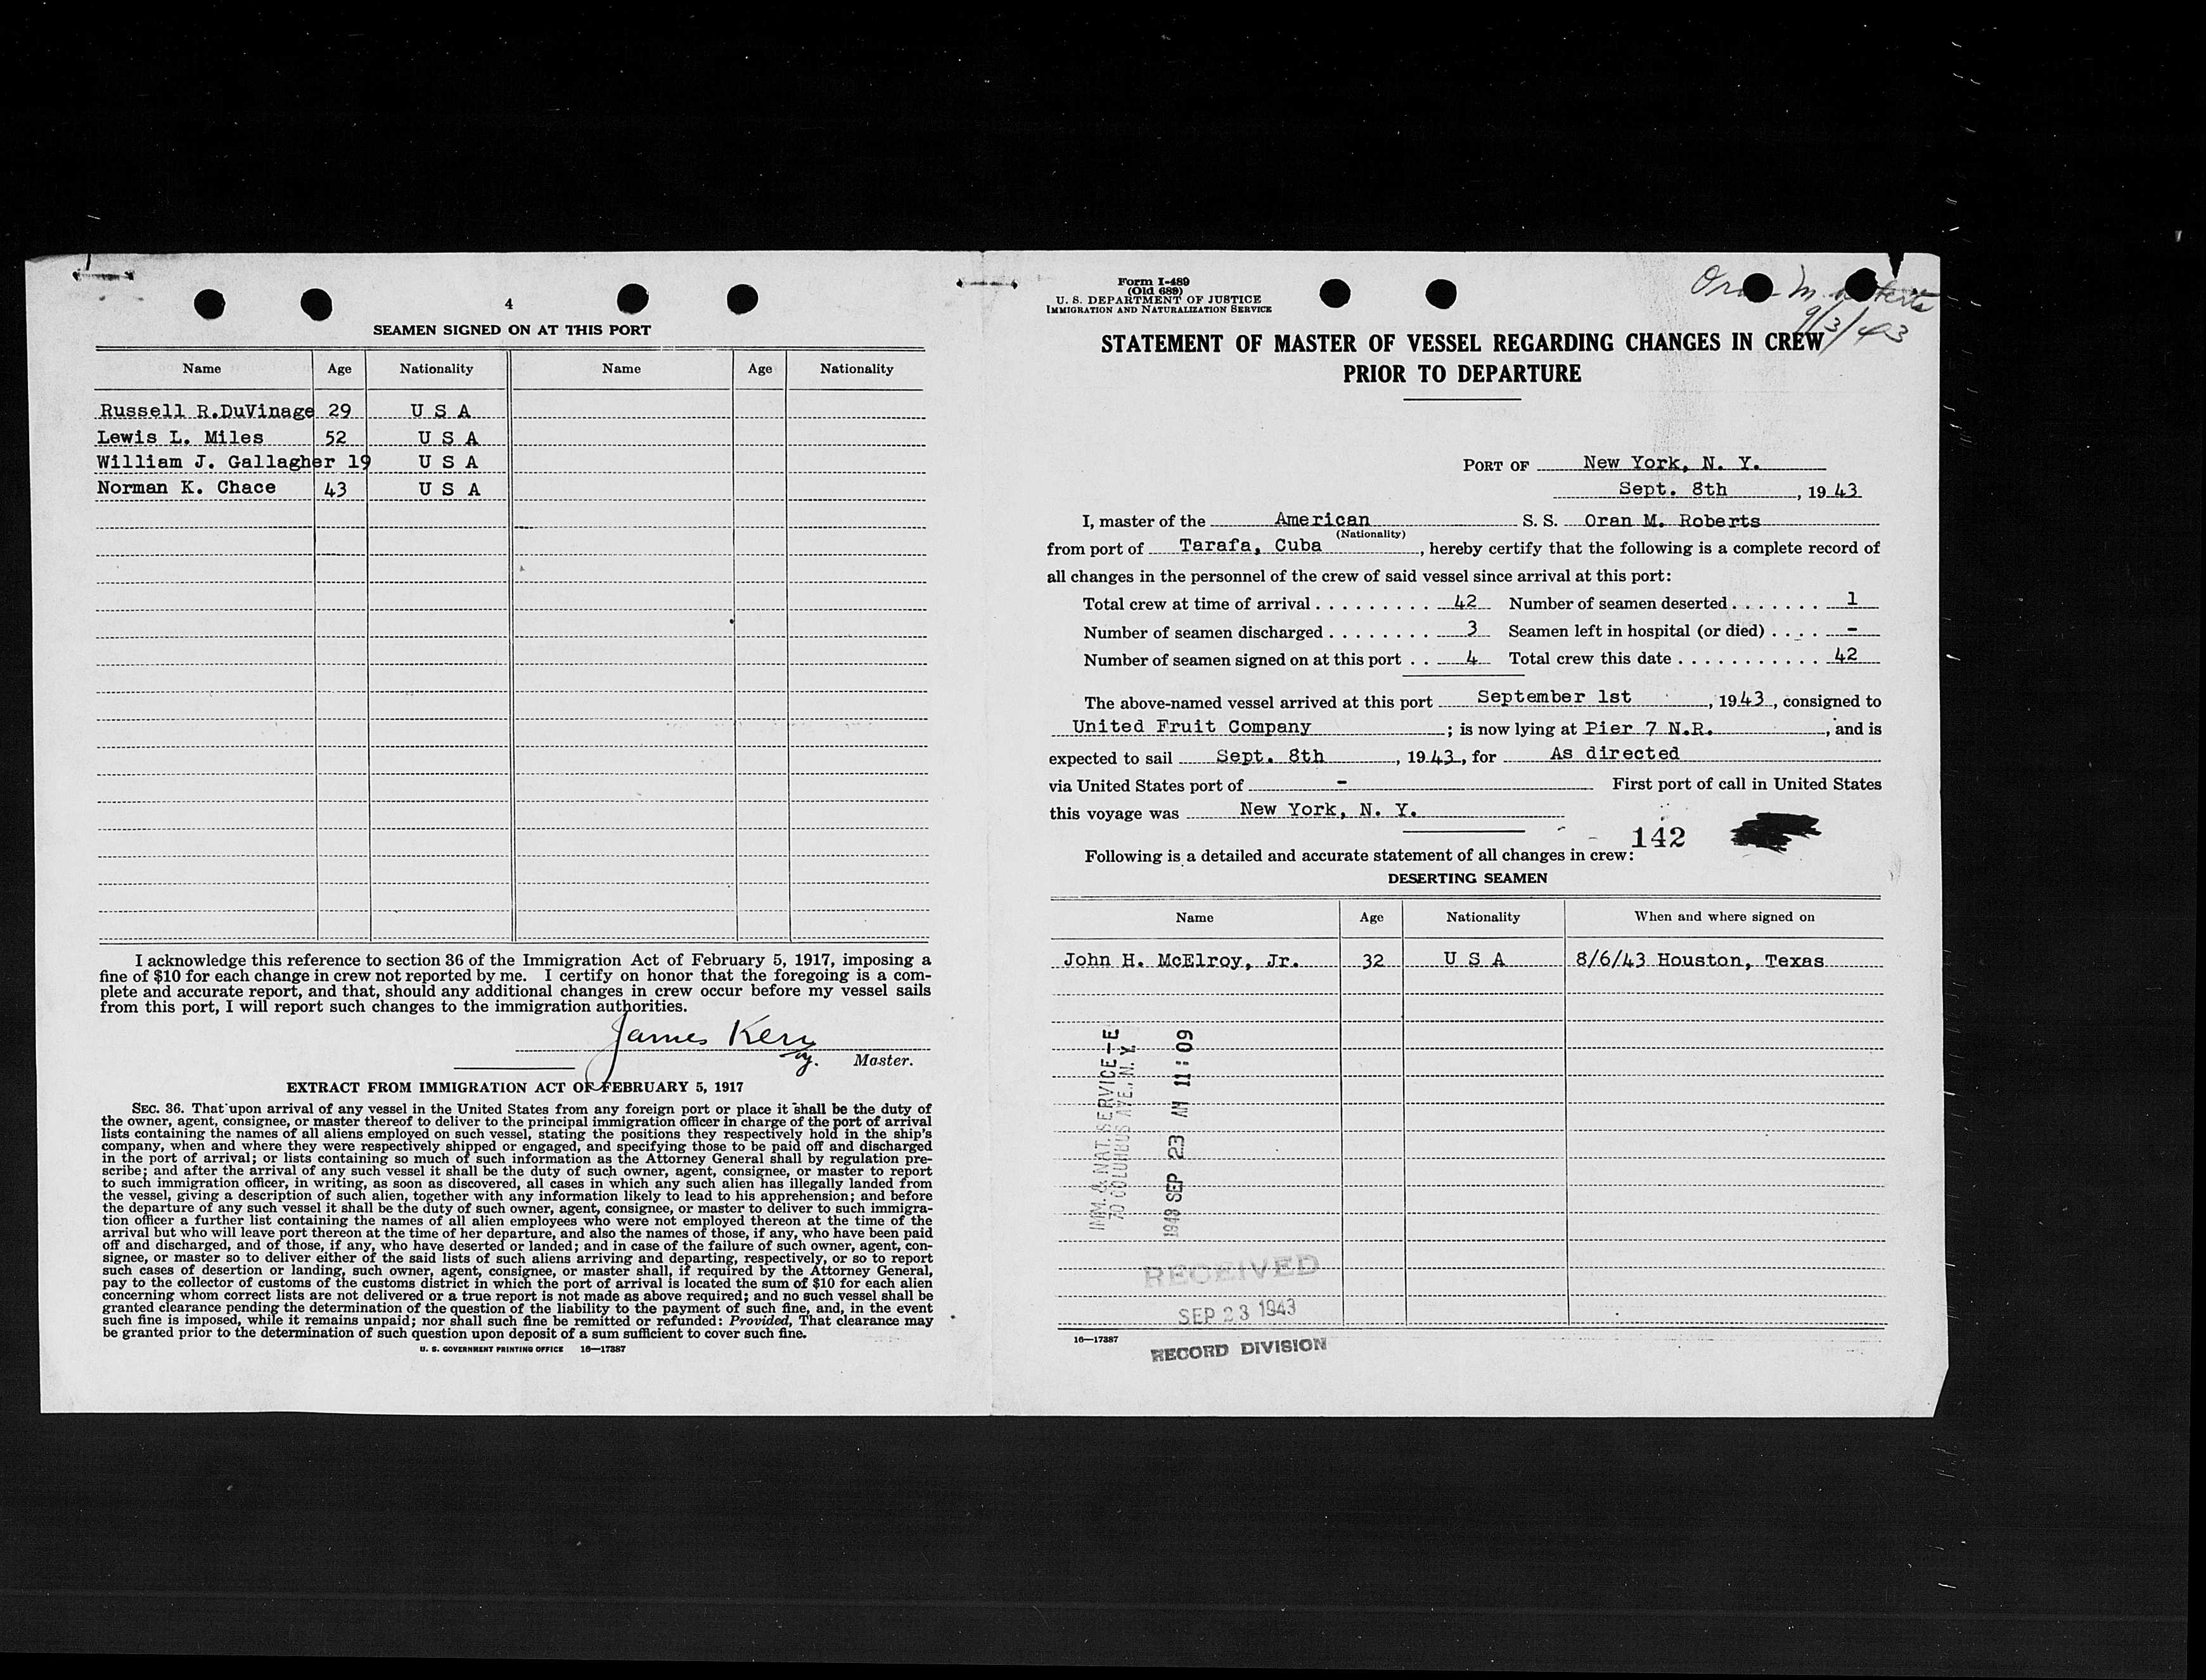 4
SEAMEN SIGNED ON AT THIS PORT
Name Age Nationality Name Age Nationality
Russell R.DuVinage 29 U S A
Lewis L. Miles 52 U S A
William J. Gallagher 19 U S A
Norman K. Chace 43 U S A
I acknowledge this reference to section 36 of the Immigration Act of February 5, 1917, imposing a
fine of $10 for each change in crew not reported by me. I certify on honor that the foregoing is a com-
plete and accurate report, and that, should any additional changes in crew occur before my vessel sails
from this port, I will report such changes to the immigration authorities.
James Kerr
Master.
EXTRACT FROM IMMIGRATION ACT OF FEBRUARY 5, 1917
SEC. 36. That upon arrival of any vessel in the United States from any foreign port or place it shall be the duty of
the owner, agent, consignee, or master thereof to deliver to the principal immigration officer in charge of the port of arrival
lists containing the names of all aliens employed on such vessel, stating the positions they respectively hold in the ship's
company, when and where they were respectively shipped or engaged, and specifying those to be paid off and discharged
in the port of arrival; or lists containing so much of such information as the Attorney General shall by regulation pre-
scribe; and after the arrival of any such vessel it shall be the duty of such owner, agent, consignee, or master to report
to such immigration officer, in writing, as soon as discovered, all cases in which any such alien has illegally landed from
the vessel, giving a description of such alien, together with any information likely to lead to his apprehension; and before
the departure of any such vessel it shall be the duty of such owner, agent, consignee, or master to deliver to such immigra-
tion officer a further list containing the names of all alien employees who were not employed thereon at the time of the
arrival but who will leave port thereon at the time of her departure, and also the names of those, if any, who have been paid
off and discharged, and of those, if any, who have deserted or landed; and in case of the failure of such owner, agent, con-
signee, or master so to deliver either of the said lists of such aliens arriving and departing, respectively, or so to report
such cases of desertion or landing, such owner, agent, consignee, or master shall, if required by the Attorney General,
pay to the collector of customs of the customs district in which the port of arrival is located the sum of $10 for each alien
concerning whom correct lists are not delivered or a true report is not made as above required; and no such vessel shall be
granted clearance pending the determination of the question of the liability to the payment of such fine, and, in the event
such fine is imposed, while it remains unpaid; nor shall such fine be remitted or refunded: Provided, That clearance may
be granted prior to the determination of such question upon deposit of a sum sufficient to cover such fine.
U. S. GOVERNMENT PRINTING OFFICE 16—17387
Form I-489
(Old 689)
U. S. DEPARTMENT OF JUSTICE
IMMIGRATION AND NATURALIZATION SERVICE
Oran M. Roberts
9/3/43
STATEMENT OF MASTER OF VESSEL REGARDING CHANGES IN CREW
PRIOR TO DEPARTURE
PORT OF New York, N. Y.
Sept. 8th, 1943
I, master of the American S. S. Oran M. Roberts
(Nationality)
from port of Tarafa, Cuba, hereby certify that the following is a complete record of
all changes in the personnel of the crew of said vessel since arrival at this port:
Total crew at time of arrival . . . . . . . . . 42 Number of seamen deserted . . . . . . . 1
Number of seamen discharged . . . . . . . . 3 Seamen left in hospital (or died) . . . . -
Number of seamen signed on at this port . . 4 Total crew this date . . . . . . . . . . . 42
The above-named vessel arrived at this port September 1st, 1943, consigned to
United Fruit Company; is now lying at Pier 7 N.R., and is
expected to sail Sept. 8th, 1943, for As directed
via United States port of - First port of call in United States
this voyage was New York, N. Y.
142
Following is a detailed and accurate statement of all changes in crew:
DESERTING SEAMEN
Name Age Nationality When and where signed on
John H. McElroy, Jr. 32 U S A 8/6/43 Houston, Texas
IMM. & NAT. SERVICE-E
70 COLUMBUS AVE., N.Y.
1943 SEP 23 AM 11:09
RECEIVED
SEP 23 1943
RECORD DIVISION
16—17387